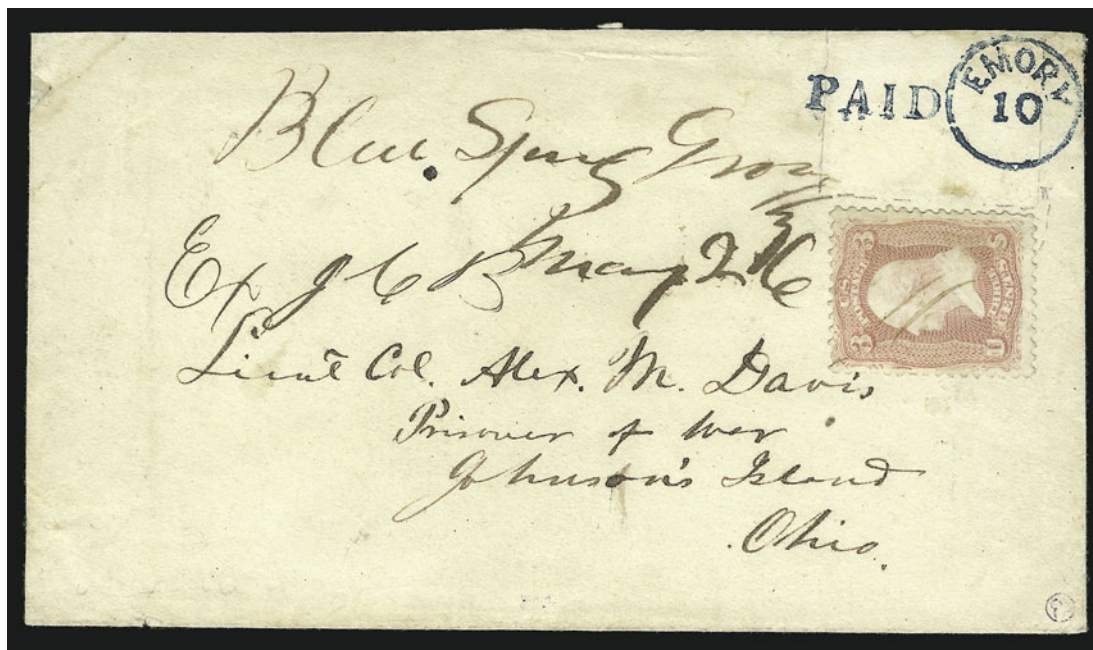 PAID
EMORY
10
Blue Spring Grove
3
Ex J C B May 26
Lieut Col. Alex. M. Davis
Prisoner of War
Johnson's Island
Ohio.